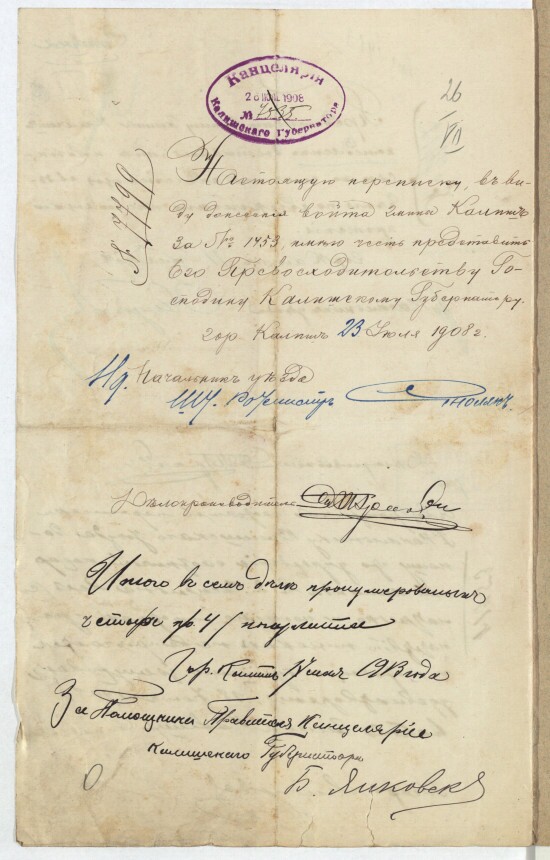 Канцелярія
26 ІЮЛ 1908
№ 4535
Калишскаго Губернатора
26
VII
№ 7799
Настоящую переписку, въ ви-
ду донесенія войта гмины Калишъ
за № 1453, имѣю честь представить
Его Превосходительству Го-
сподину Калишскому Губернатору.
гор. Калишъ 23 Іюля 1908 г.
Начальникъ уѣзда
Шт. Ротмистръ
Дѣлопроизводитель
Итого в семъ дѣлѣ пронумерованныхъ
четыре /4/ полулиста
Гор. Калишъ мая года
За Помощника Правителя Канцеляріи
Калишскаго Губернатора
Б. Янковскі